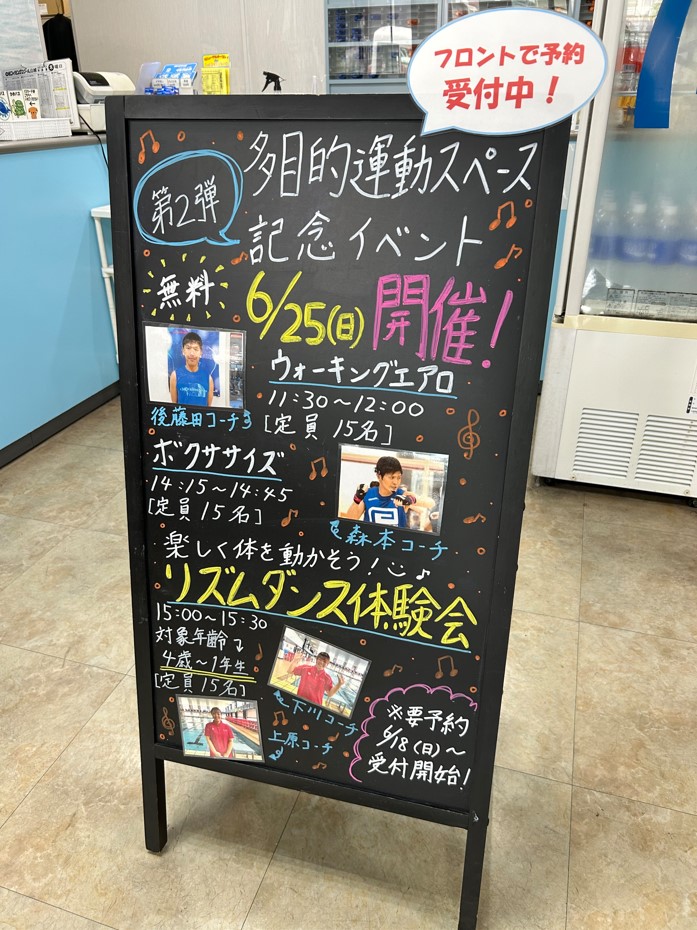 フロントで予約
受付中！
第2弾
多目的運動スペース
記念イベント
無料
6/25(日)開催!
ウォーキングエアロ
11:30～12:00
[定員 15名]
後藤田コーチ
ボクササイズ
14:15～14:45
[定員 15名]
森本コーチ
楽しく体を動かそう!
リズムダンス体験会
15:00～15:30
対象年齢
4歳～1年生
[定員 15名]
下川コーチ
上原コーチ
※要予約
6/18(日)～
受付開始!